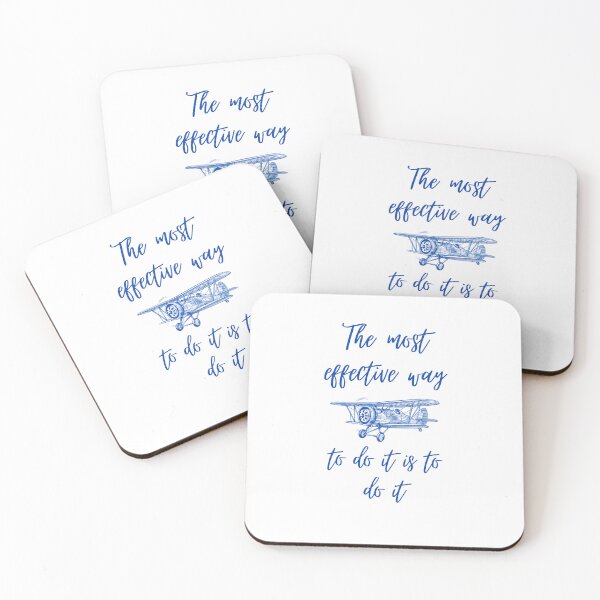 The most
effective way
to
The most
effective way
to do it is to
The most
effective way
to do it is t
do it
The most
effective way
to do it is to
do it